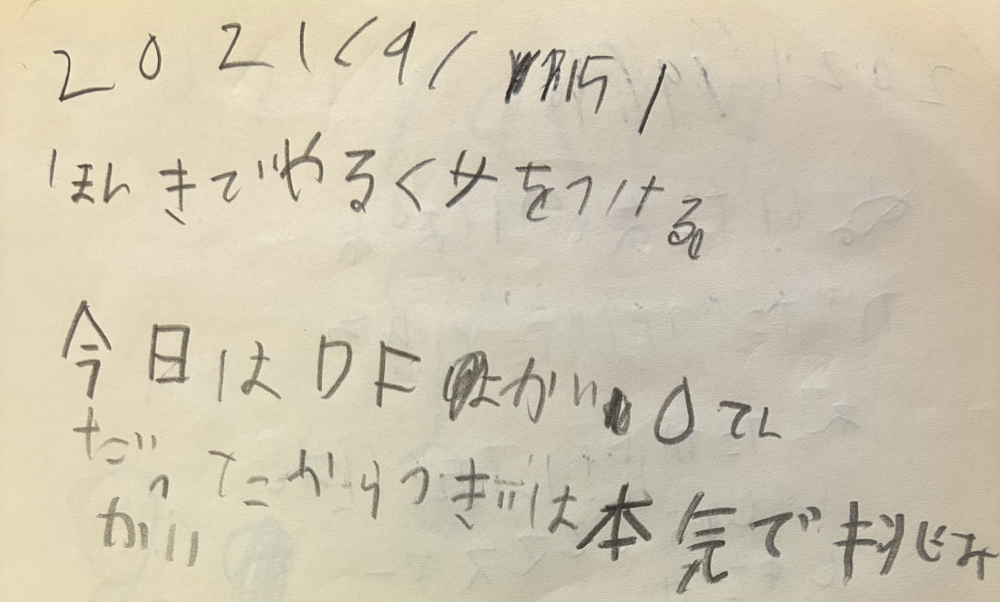 2021/9/15/
ほんきでやるくせをつける。
今日はDFが0てん
だったからつぎは本気で挑み